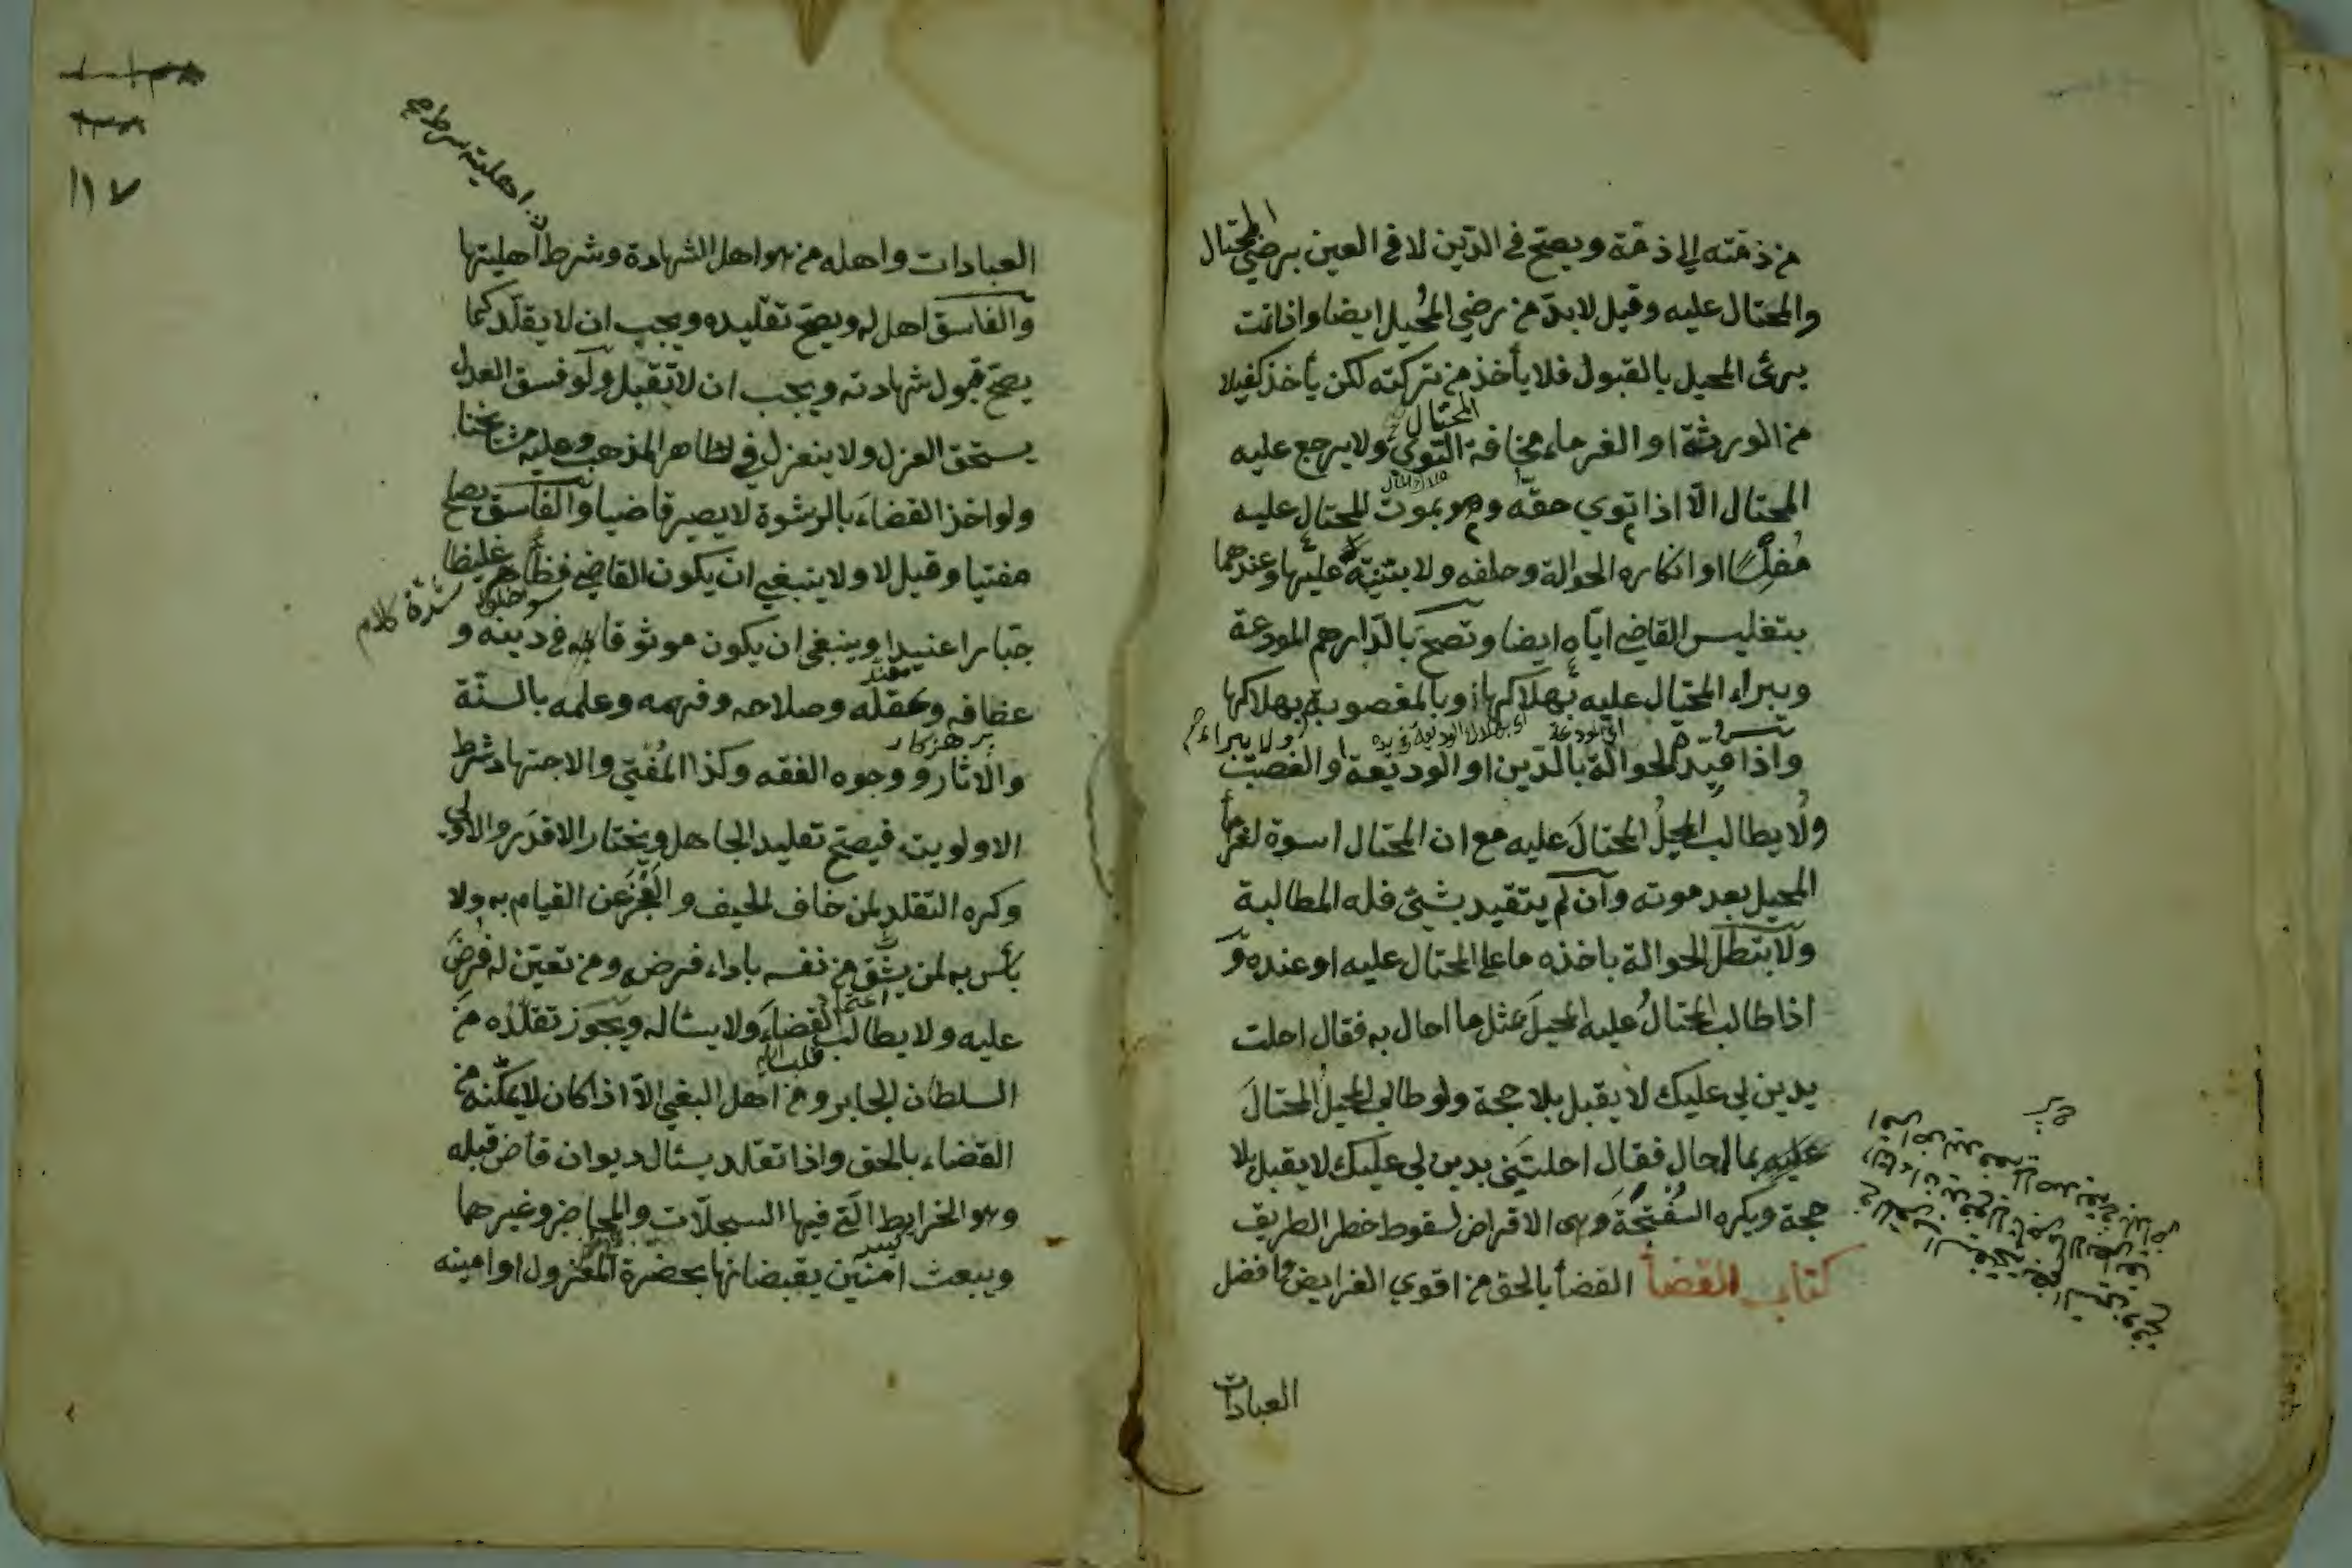 من ذمته الى ذمة ويصح في الدّين لا في العين برضي المحتال
والمحتال عليه وقيل لا بدّ من رضي المُحيل ايضا واذا تمت
برئ المحيل بالقبول فلا يأخذ من تركته لكن يأخذ كفيلا
المحتال
من الورثة او الغرماء مخافة التوي ولا يرجع عليه
المحتال الّا اذا توي حقّه وهو بموت المحتال عليه
مُفلِسًا او انكاره الحوالة وحلفه ولا بيّنة عليها وعندهما
بتفليس القاضي ايّاه ايضا وتصحّ بالدّراهم المودعة
ويبراء المحتال عليه بهلاكها او بالمغصوبة بهلاكها
ولا يبراء
واذا قيّد الحوالة بالدّين او الوديعة والغصب
ولا يطالب المحيلُ المحتالَ عليه مع ان المحتال اسوة لغرماء
المحيل بعد موته وان لم يتقيد بشئ فله المطالبة
ولا بتطل الحوالة باخذه ما على المحتال عليه او عنده و
اذا طالب المحتالُ عليه المحيلَ بمثل ما احال به فقال احلت
بدين لي عليك لا يقبل بلا حجة ولو طالب المحيلُ المحتالَ
عليه بما احال فقال احلتني بدين لي عليك لا يقبل بلا
حجة ويكره السُفْتَجَة وهى الاقراض لسقوط خطر الطريق
كتاب القضأ القضأ بالحق من اقوي الفرايض وافضل
العبادات
١١٧
العبادات واهله من هو اهل الشهادة وشرط اهليتها
والفاسق اهل له ويصح تقليده ويجب ان لا يقلّد كما
يصحّ قبول شهادته ويجب ان لا تقبل ولو فسق العدل
يستحق العزل ولا ينعزل في ظاهر المذهب وعليه مشايخنا
ولو اخذ القضاء بالرشوة لا يصير قاضيا والفاسق يصلح
مفتيا وقيل لا ولا ينبغي ان يكون القاضي فظّا غليظا
شدة كلام
جبّارا عنيدا وينبغي ان يكون موثوقا به في دينه و
عفافه وعقله وصلاحه وفهمه وعلمه بالسنّة
پرهزكار
والاثار ووجوه الفقه وكذا المُفتي والاجتهاد شرط
الاولوية فيصحّ تقليد الجاهل ويختار الاقدر والاولى
وكره التقلد لمن خاف الحيف والعَجْزَ عن القيام به ولا
بأس به لمن يثق من نفسه باداء فرضه ومن تعيّن له فُرِضَ
عليه ولا يطالب القضاءَ ولا يسأله ويجوز تقلّده من
السلطان الجابر ومن اهل البغي الّا اذا كان لا يمكّنه من
القضاء بالحق واذا تقلد يسئال ديوان قاض قبله
وهو الخرايط الّتي فيها السجلّات والمحاضر وغيرهما
ويبعث امنين يقبضانها بحضرة المعزول او امينه